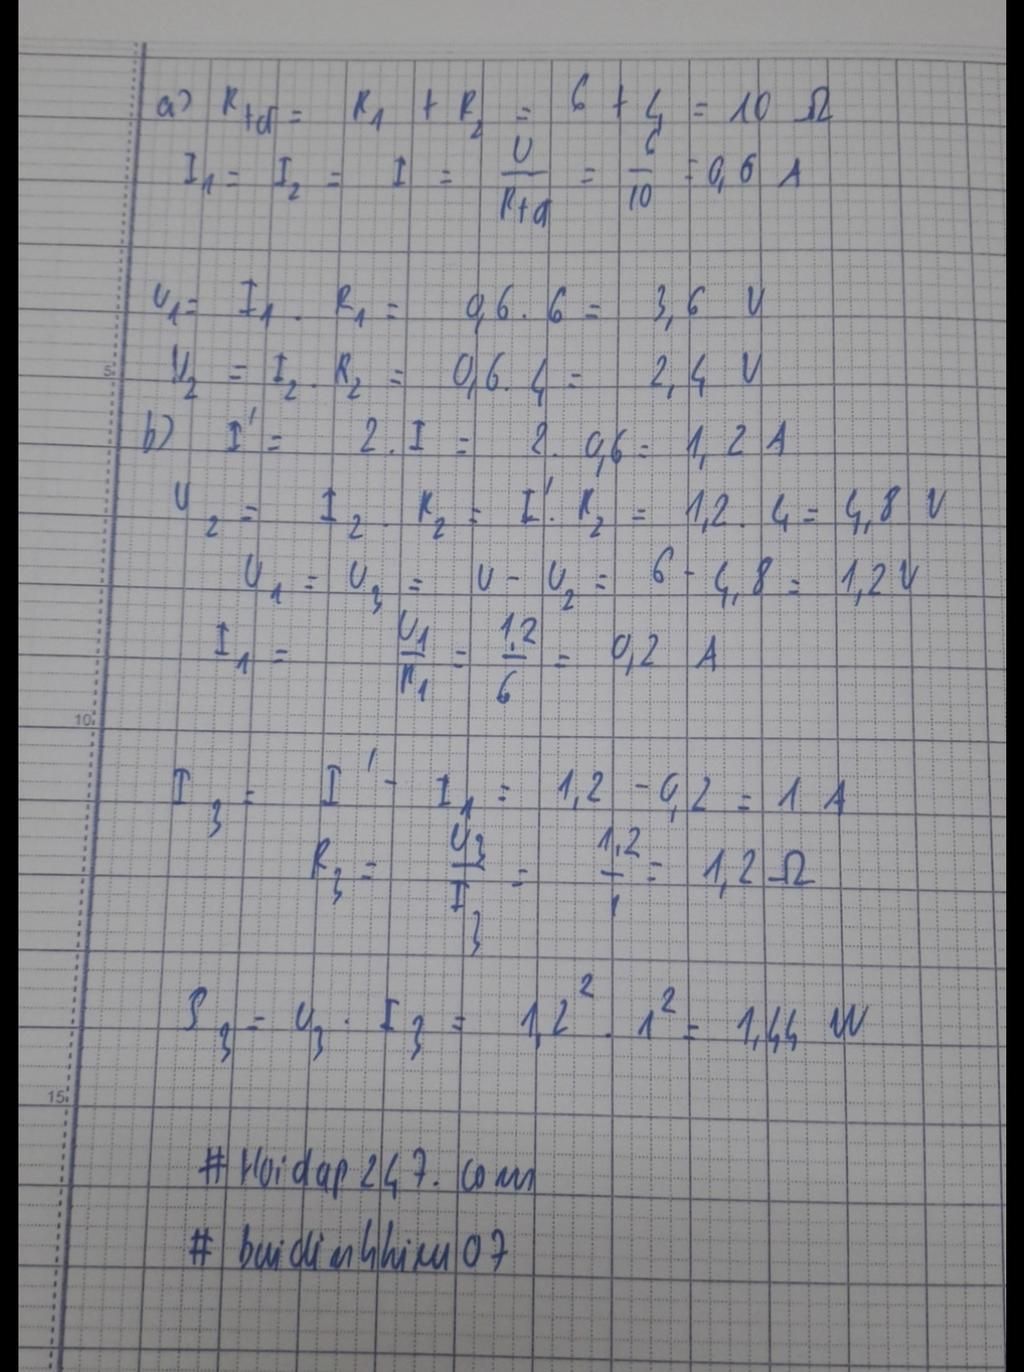 a) Rtđ = R1 + R2 = 6 + 4 = 10 Ω
I1 = I2 = I = U/Rtđ = 6/10 = 0,6 A
U1 = I1 . R1 = 0,6 . 6 = 3,6 V
5
U2 = I2 . R2 = 0,6 . 4 = 2,4 V
b) I' = 2 . I = 2 . 0,6 = 1,2 A
U2 = I2 . R2 = I' . R2 = 1,2 . 4 = 4,8 V
U1 = U3 = U - U2 = 6 - 4,8 = 1,2 V
I1 = U1/R1 = 1,2/6 = 0,2 A
10
I3 = I' - I1 = 1,2 - 0,2 = 1 A
R3 = U3/I3 = 1,2/1 = 1,2 Ω
P3 = U3 . I3 = 1,2² . 1² = 1,44 W
15
# Hoidap247.com
# buidinhhieu07